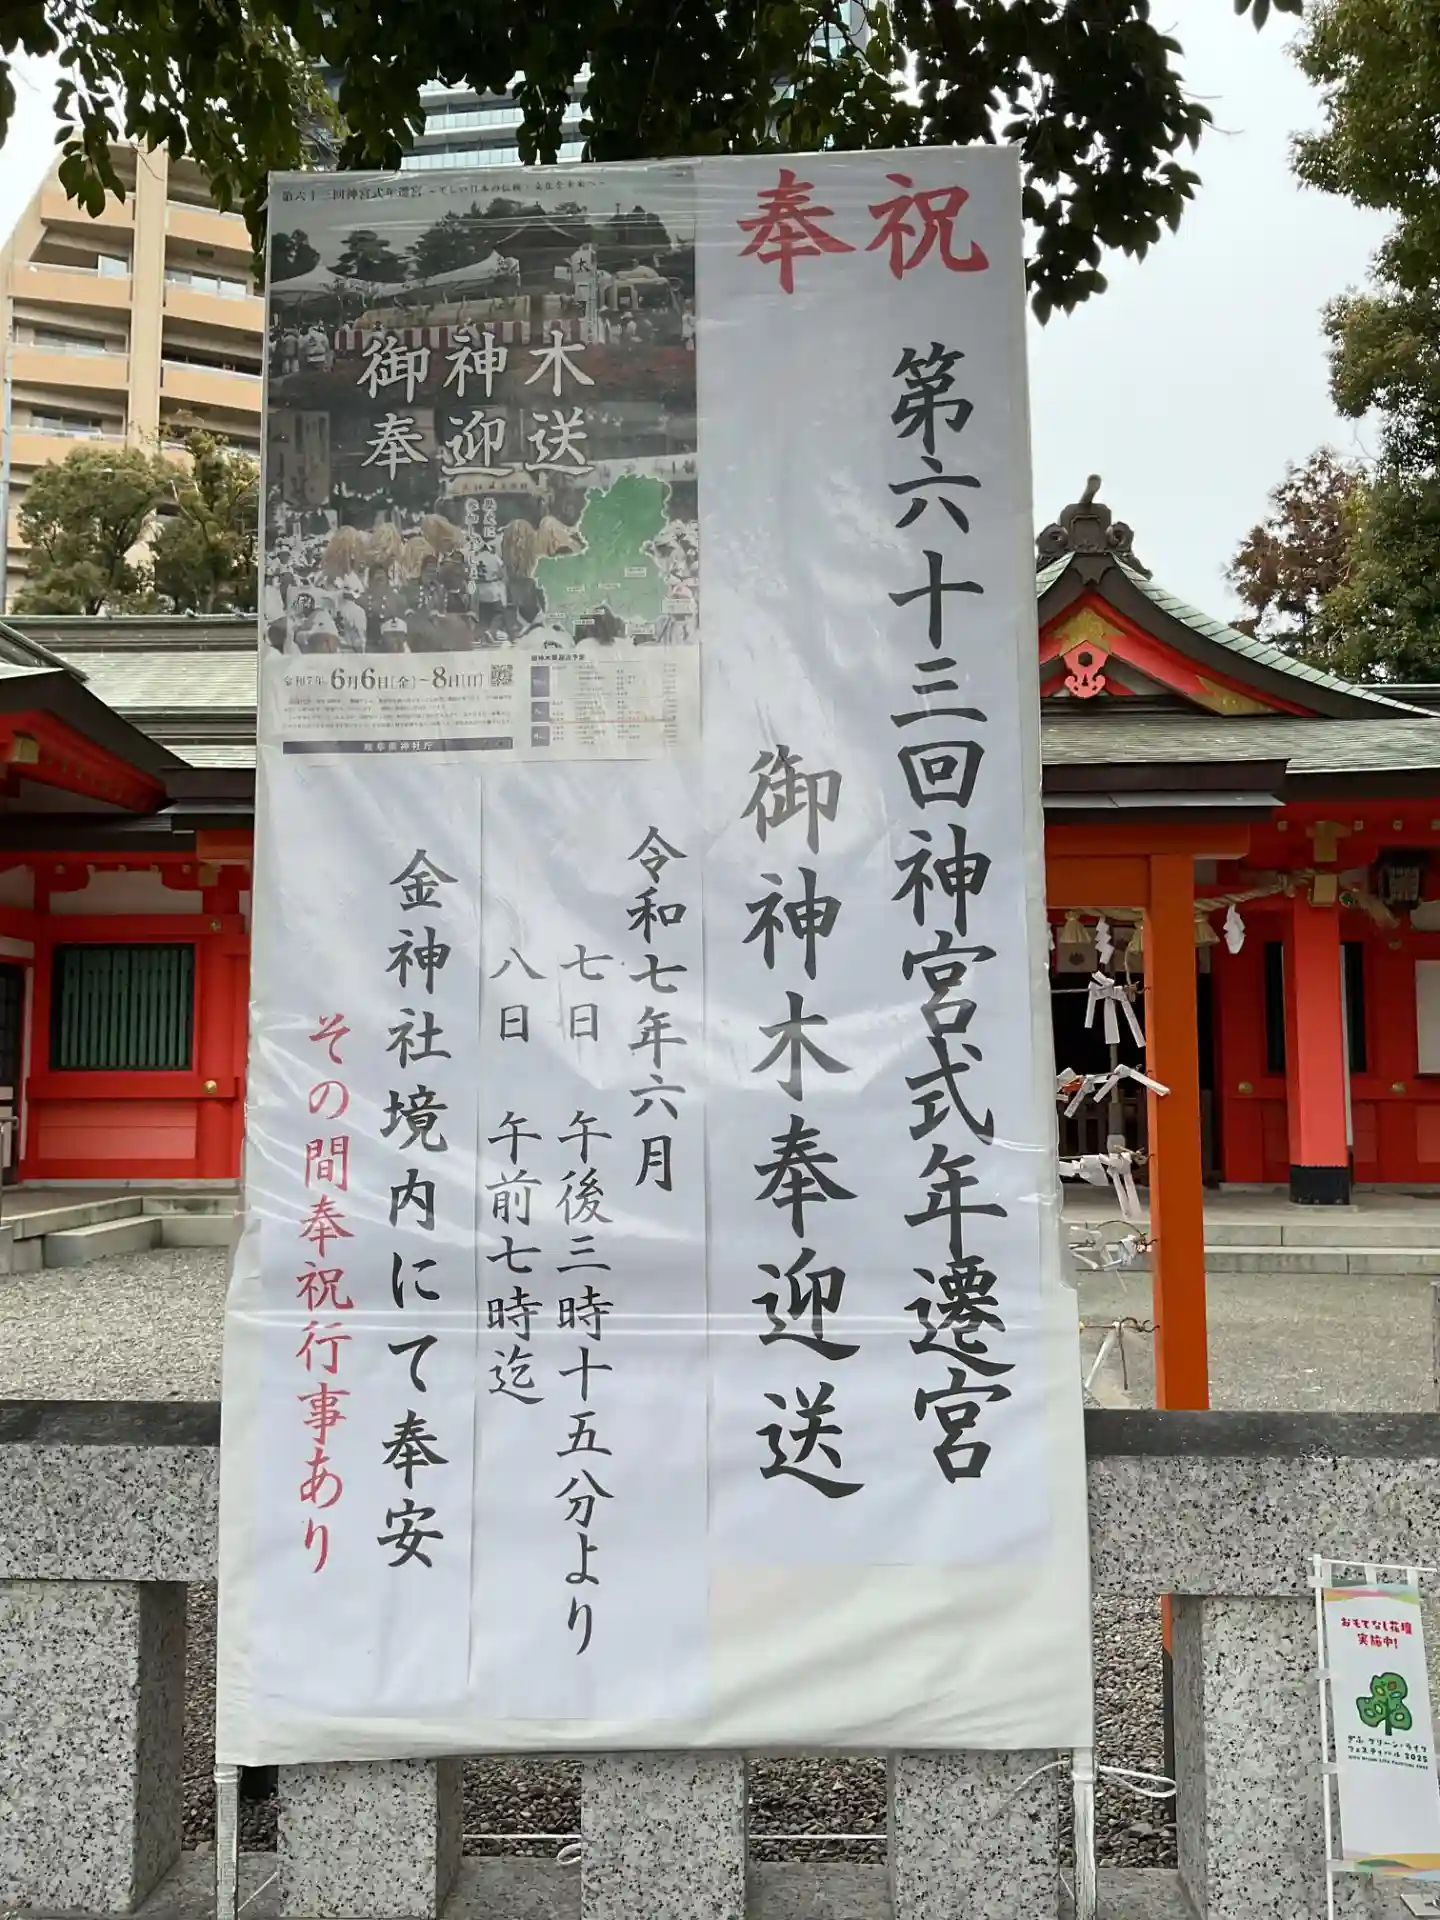 奉祝
第六十三回神宮式年遷宮
御神木奉迎送
令和七年六月
七日 午後三時十五分より
八日 午前七時迄
金神社境内にて奉安
その間奉祝行事あり
第六十三回神宮式年遷宮
御神木
奉迎送
令和7年 6月6日(金)~8日(日)
岐阜県神社庁
おもてなし花壇
実施中!
ぎふ グリーン・ライフ
フェスティバル 2025